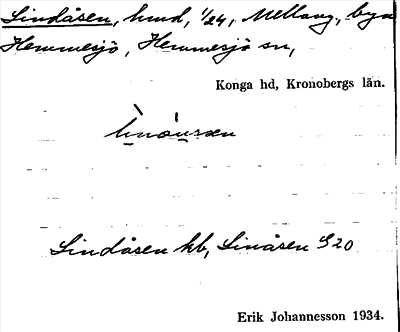 Lindåsen, hmd, 1/24, Mellang, byn
Hemmesjö, Hemmesjö sn,
Konga hd, Kronobergs län.
Lindåsen kb, Linåsen S 20
Erik Johannesson 1934.